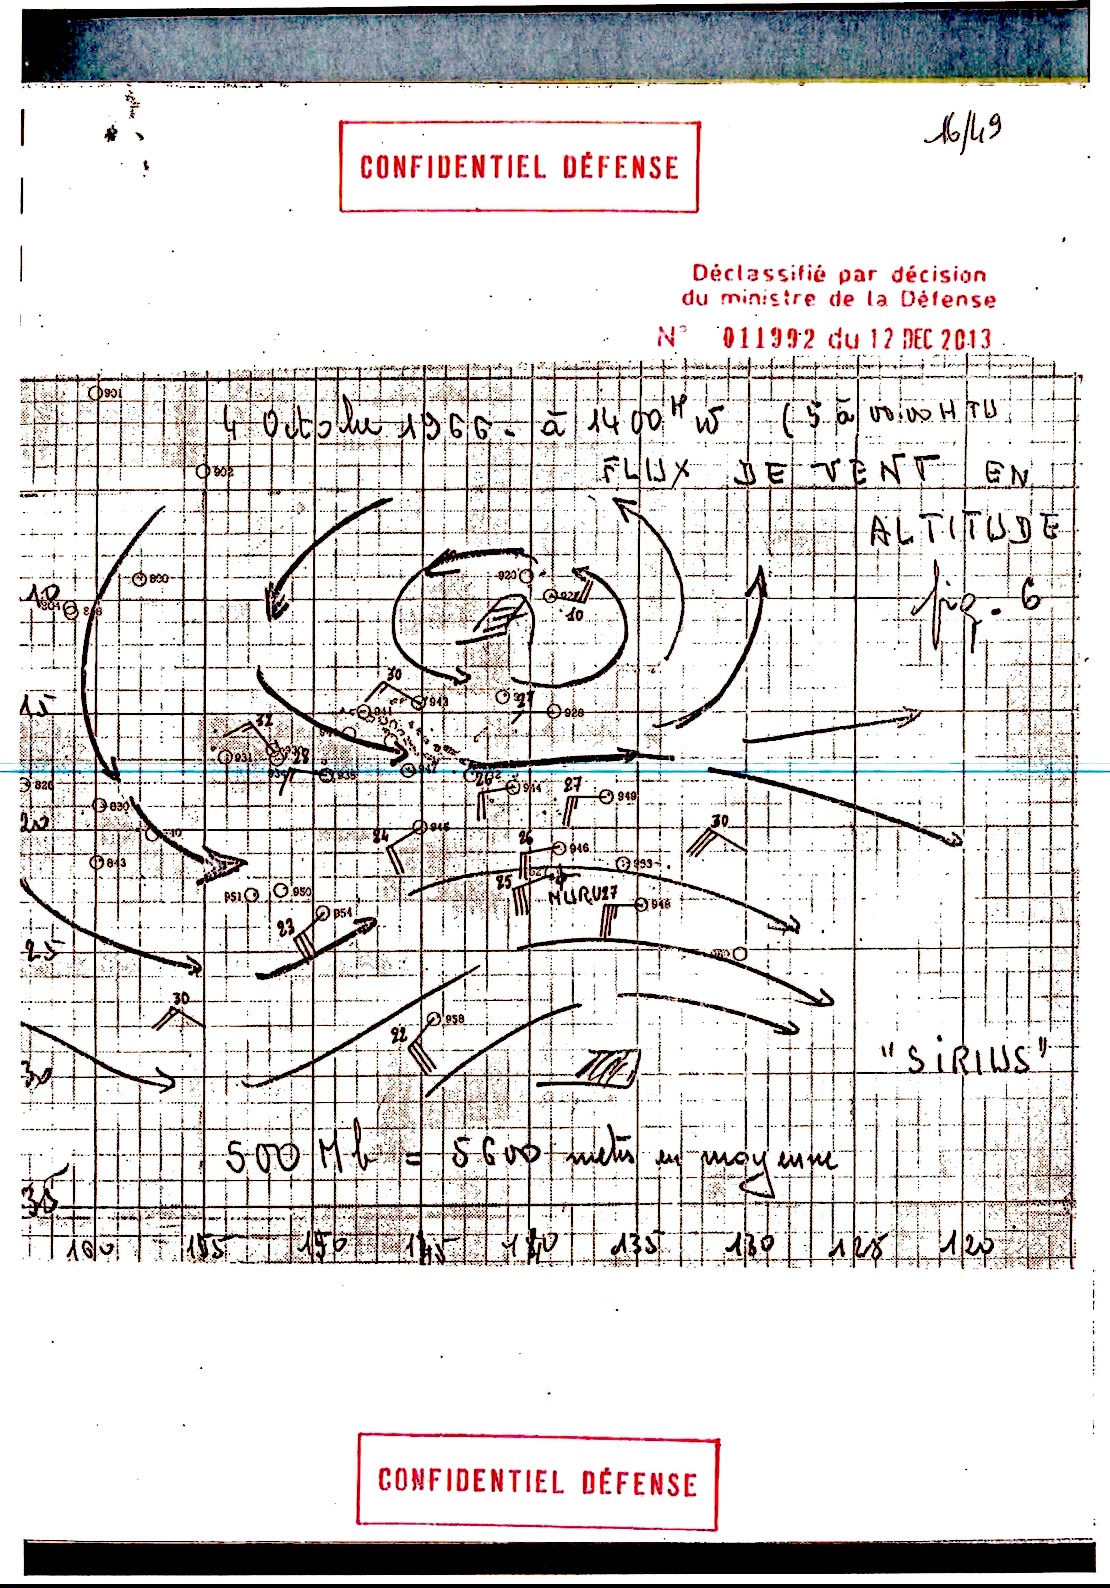 16/49
CONFIDENTIEL DÉFENSE
Déclassifié par décision
du ministre de la Défense
N° 011992 du 12 DEC 2013
901
4 Octobre 1966. à 1400 H W (5 à 00.00 H TU
902
FLUX DE VENT EN
ALTITUDE
fig. 6
800
920
10
10
30
943
941
15
928
32
931
28
935
820
830
944
27
949
20
24
945
26
946
30
843
953
25
MURU
27
948
951
950
23
954
25
30
958
22
30
"SIRIUS"
500 Mb = 5600 mètres en moyenne
35
160 155 150 145 140 135 130 125 120
CONFIDENTIEL DÉFENSE